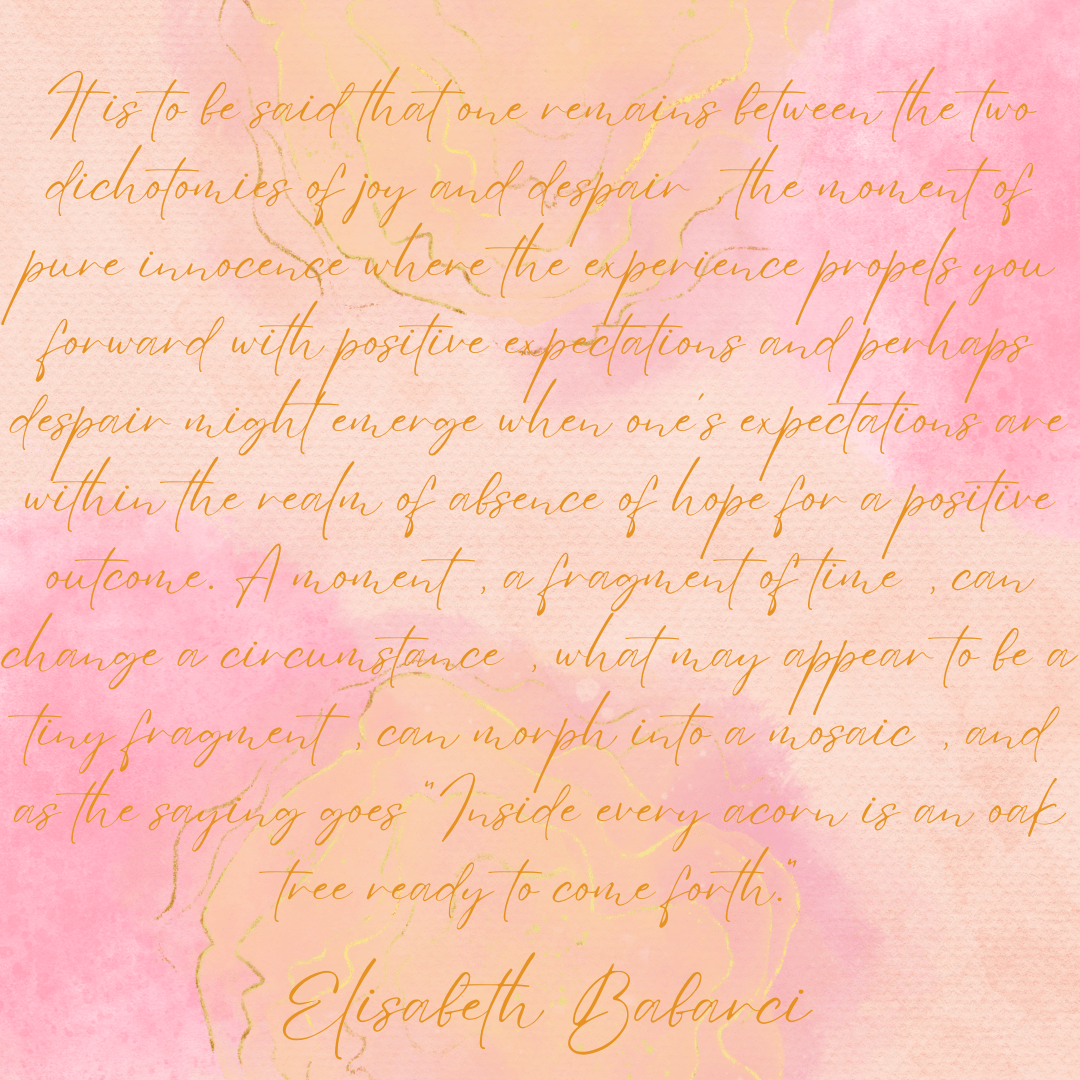 It is to be said that one remains between the two
dichotomies of joy and despair the moment of
pure innocence where the experience propels you
forward with positive expectations and perhaps
despair might emerge when one's expectations are
within the realm of absence of hope for a positive
outcome. A moment , a fragment of time , can
change a circumstance , what may appear to be a
tiny fragment , can morph into a mosaic , and
as the saying goes "Inside every acorn is an oak
tree ready to come forth."
Elisabeth Babarci